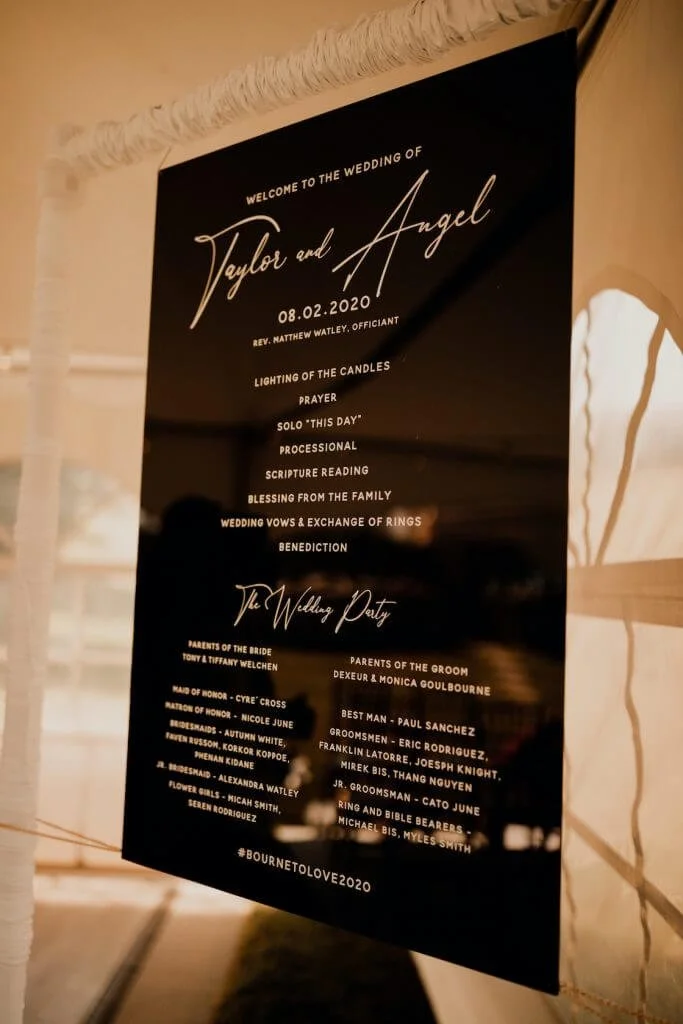 WELCOME TO THE WEDDING OF
Taylor and Angel
08.02.2020
REV. MATTHEW WATLEY, OFFICIANT
LIGHTING OF THE CANDLES
PRAYER
SOLO "THIS DAY"
PROCESSIONAL
SCRIPTURE READING
BLESSING FROM THE FAMILY
WEDDING VOWS & EXCHANGE OF RINGS
BENEDICTION
The Wedding Party
PARENTS OF THE BRIDE
TONY & TIFFANY WELCHEN
MAID OF HONOR - CYRE' CROSS
MATRON OF HONOR - NICOLE JUNE
BRIDESMAIDS - AUTUMN WHITE,
FAVEN RUSSOM, KORKOR KOPPOE,
PHENAN KIDANE
JR. BRIDESMAID - ALEXANDRA WATLEY
FLOWER GIRLS - MICAH SMITH,
SEREN RODRIGUEZ
PARENTS OF THE GROOM
DEXEUR & MONICA GOULBOURNE
BEST MAN - PAUL SANCHEZ
GROOMSMEN - ERIC RODRIGUEZ,
FRANKLIN LATORRE, JOESPH KNIGHT,
MIREK BIS, THANG NGUYEN
JR. GROOMSMAN - CATO JUNE
RING AND BIBLE BEARERS -
MICHAEL BIS, MYLES SMITH
#BOURNETOLOVE2020